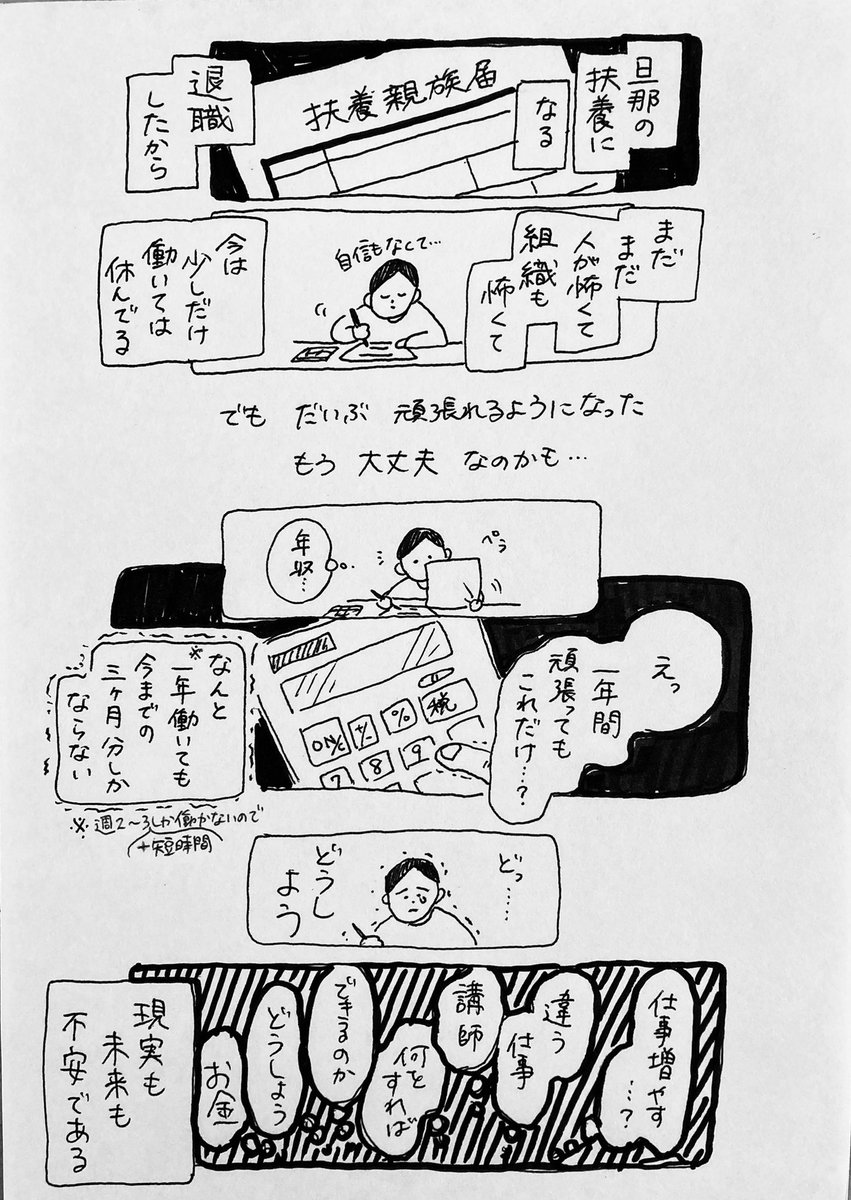 旦那の
扶養に
なる
扶養親族届
退職
したから
まだ
まだ
人が怖くて
組織も
怖くて
自信もなくて…
今は
少しだけ
働いては
休んでる
でも だいぶ 頑張れるようになった
もう 大丈夫 なのかも…
ペラ
年収…
えっ
一年間
頑張っても
これだけ…?
税
%
+/-
ON/C
9
8
7
なんと
※一年働いても
今までの
三ヶ月分しか
ならない
※週2〜3しか働かないので
+短時間
どっ……
どうし
よう
仕事増やす
…?
違う
仕事
講師
何を
すれば
できるのか
どうしよう
お金
現実も
未来も
不安である